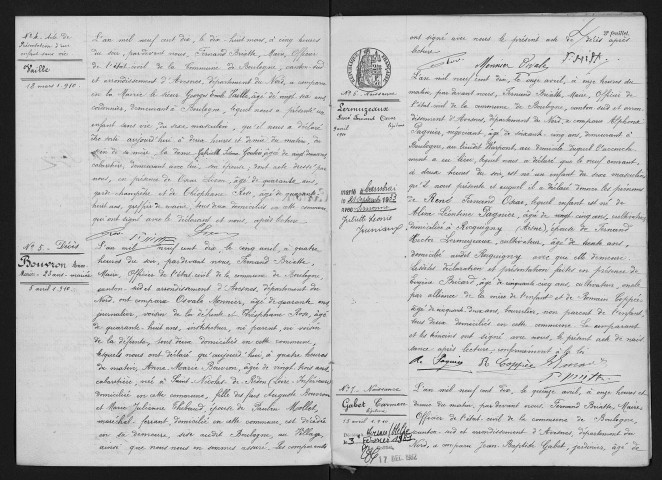 N° 4. Acte de
Présentation d'un
enfant sans vie
Vaille
18 mars 1910
L'an mil neuf cent dix, le dix-huit mars, à cinq heures
du soir, par devant nous, Fernand Briatte, Maire, Officier
de l'état civil de la Commune de Boulogne, canton sud
et arrondissement d'Avesnes, département du Nord, a comparu
en la Mairie le sieur Georges Emile Vaille, âgé de vingt six ans
cordonnier, demeurant à Boulogne, lequel nous a présenté un
enfant sans vie du sexe masculin, qu'il nous a déclaré
être sorti aujourd'hui à deux heures et demie du matin, du
sein de sa mère, la dame Gabrielle
cabaretière, demeurant avec lui, son épouse, dont acte dressé par
nous, en présence de Omer Lecon, âgé de quarante ans,
garde champêtre, et de Théophane Rose, âgé de quarante
huit ans, greffier de mairie, tous deux domiciliés en cette commune
qui ont signé avec le déclarant et nous, après lecture
N° 5. Décès
Bouvron Anna
Marie - 23 ans - mariée
5 avril 1910
L'an mil neuf cent dix, le cinq avril, à quatre
heures du soir, par devant nous, Fernand Briatte,
Maire, Officier de l'état civil de la commune de Boulogne,
canton sud et arrondissement d'Avesnes, département du
Nord, ont comparu Osvale Monnier, âgé de quarante ans,
journalier, voisin de la défunte et Théophane Rose, âgé
de quarante-huit ans, instituteur, né parent, ni voisin
de la défunte, tous deux domiciliés en cette commune,
lesquels nous ont déclaré qu'aujourd'hui, à quatre heures
du matin, Anna Marie Bouvron, âgée de vingt trois ans,
cabaretière, née à Saint Nicolas de Redon (Loire-Inférieure)
domiciliée en cette commune, fille des feus Auguste Bouvron
et Marie Julienne Thébaud, épouse de Paulin Mollet,
maréchal-ferrant, domicilié en cette commune, est décédée
en sa demeure, sise audit Boulogne, au Village
ainsi que nous nous en sommes assuré. Les comparants
2e feuillet.
ont signé avec nous le présent acte de décès après
lecture
Monnier Osvale
N° 6. Naissance
Lermuzeaux
René Fernand Omer
légitime
9 avril
1910
marié à Cambrai
le
avec
Juliette Léonie
L'an mil neuf cent dix, le onze avril, à onze heures du
matin, par devant nous, Fernand Briatte, Maire, Officier de
l'état civil de la commune de Boulogne, canton sud et arrondissement
d'Avesnes, département du Nord, a comparu Alphonse
Pagnier, négociant, âgé de soixante cinq ans, demeurant à
Boulogne, au lieudit Warpont, au domicile duquel l'accouchement
a eu lieu, lequel nous a déclaré que le neuf courant,
à deux heures du soir, est né un enfant du sexe masculin
qu'il nous a présenté et auquel il a déclaré donner les prénoms
de René Fernand Omer, lequel enfant est né de
Aline Léontine Pagnier, âgée de vingt cinq ans, cultivatrice
domiciliée à Rocquigny (Aisne), épouse de Fernand
Hector Lermuzeaux, cultivateur, âgé de trente ans,
domicilié audit Rocquigny avec qui elle demeure.
Lesdites déclaration et présentation faites en présence de
Eugène Bricard, âgé de cinquante cinq ans, cultivateur, oncle
par alliance de la mère de l'enfant et de Romain Coppée
âgé de cinquante deux ans, bourrelier, non parent de l'enfant,
tous deux domiciliés en cette commune. Le comparant
et les témoins ont signé avec nous, le présent acte de nais-
sance après lecture, conformément à la loi
A. Pagnier R. Coppée
N° 7. Naissance
Gabet Carmen
légitime
15 avril 1910
17 DEC. 1984
L'an mil neuf cent dix, le quinze avril, à onze heures et
demie du matin, par devant nous, Fernand Briatte, Maire
Officier de l'état civil de la commune de Boulogne,
canton sud et arrondissement d'Avesnes, département du
Nord, a comparu Jean Baptiste Gabet, âgé de